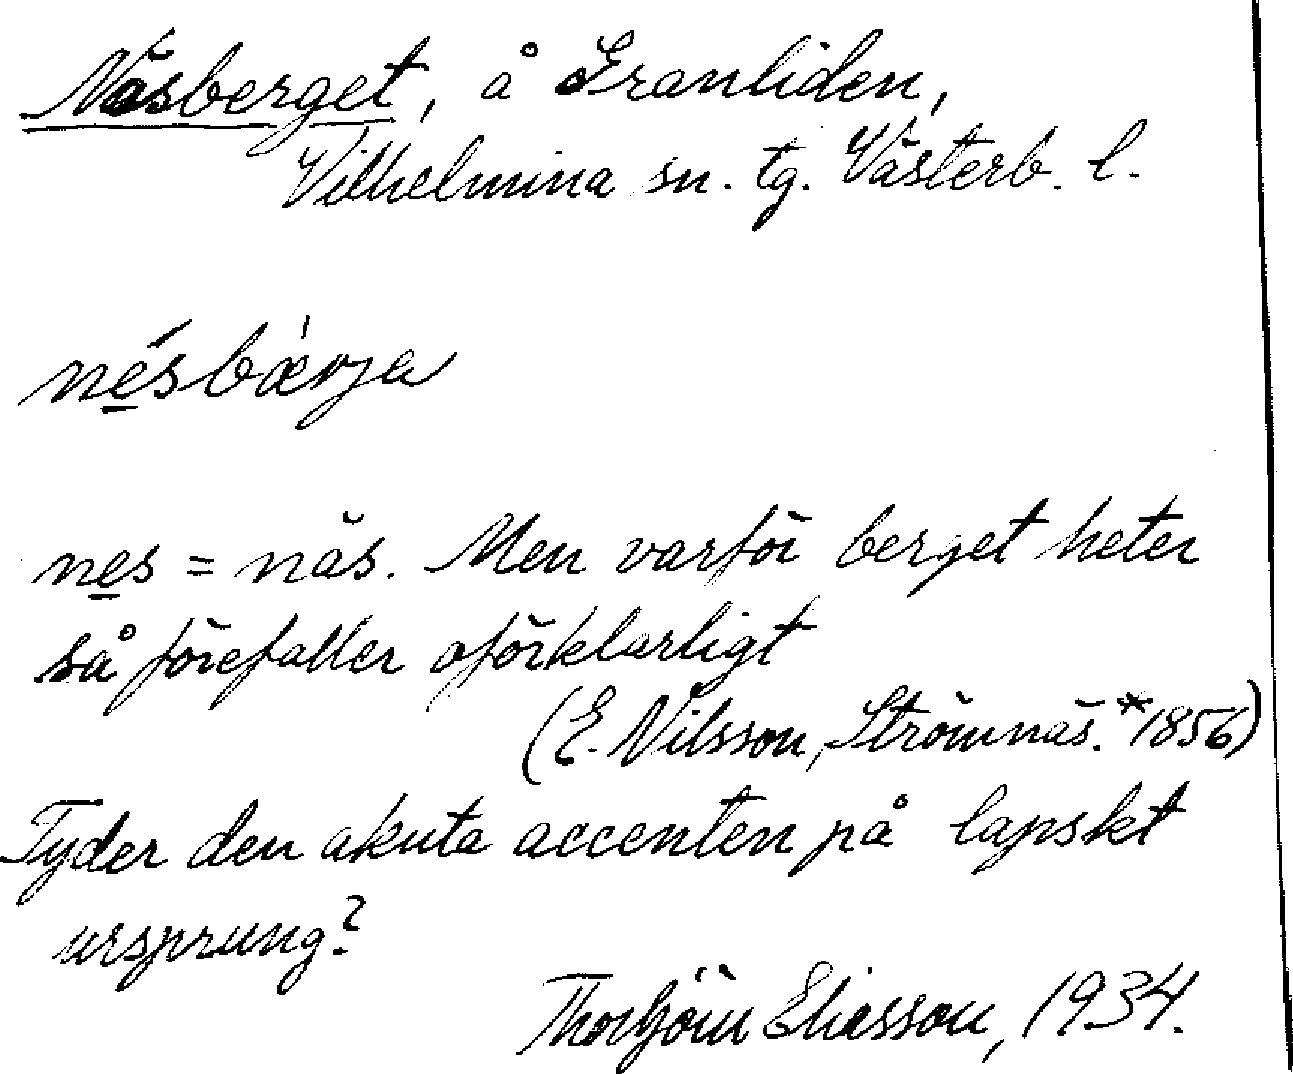 Näsberget, å Granliden,
Vilhelmina sn. tg. Västerb. l.
nésbǽrja
nes = näs. Men varför berget heter
så förefaller oförklarligt
(E. Nilsson, Strömnäs. *1856)
Tyder den akuta accenten på lapskt
ursprung?
Thorbjörn Eliasson, 1934.